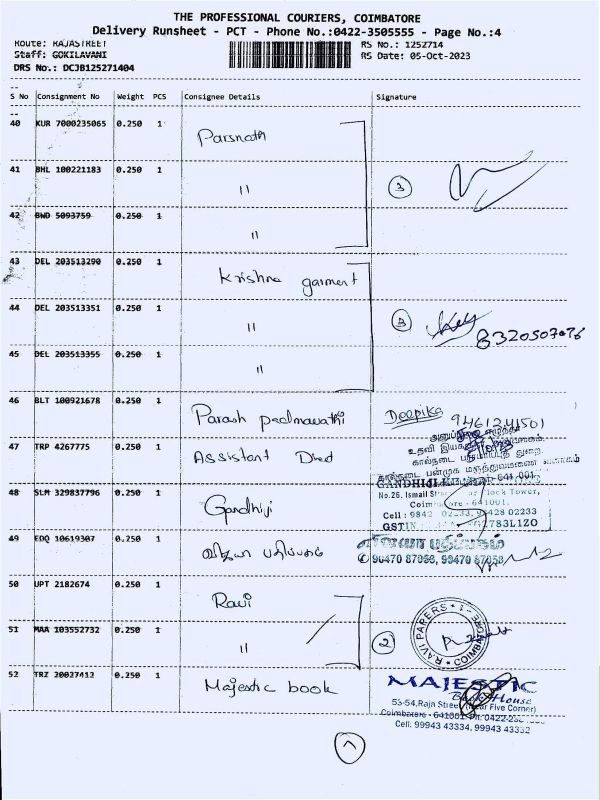 THE PROFESSIONAL COURIERS, COIMBATORE
Delivery Runsheet - PCT - Phone No.:0422-3505555 - Page No.:4
Route: RAJASTREET RS No.: 1252714
Staff: GOKILAVANI RS Date: 05-Oct-2023
DRS No.: DCJB125271404
S No Consignment No Weight PCS Consignee Details Signature
40 KUR 7000235065 0.250 1 Parsnath
41 BHL 100221183 0.250 1 " 3
42 BWD 5093759 0.250 1 "
43 DEL 203513290 0.250 1 Krishna garment
44 DEL 203513351 0.250 1 " 3
8320507076
45 DEL 203513355 0.250 1 "
46 BLT 100921678 0.250 1 Parash padmavathi Deepika 9461241501
47 TRP 4267775 0.250 1 Assistant Dred
கால்நடை பன்முக மருத்துவமனை வளாகம்
48 SLM 329837796 0.250 1 Gandhiji
No.26, Ismail Clock Tower,
641001.
Cell : 9842 02233, 98428 02233
GSTIN 2783L1ZO
49 EDQ 10619307 0.250 1 விஜயா பதிப்பகம்
விஜயா பதிப்பகம்
90470 87058, 90470 87058
50 UPT 2182674 0.250 1 Ravi
51 MAA 103552732 0.250 1 " 2 RAVI PAPERS COIMBATORE - 1
52 TRZ 20027412 0.250 1 Majestic book
MAJESTIC
Book House
53-54, Raja Street (Near Five Corner)
Coimbatore - 641001. Ph: 0422-
Cell: 99943 43334, 99943 43332